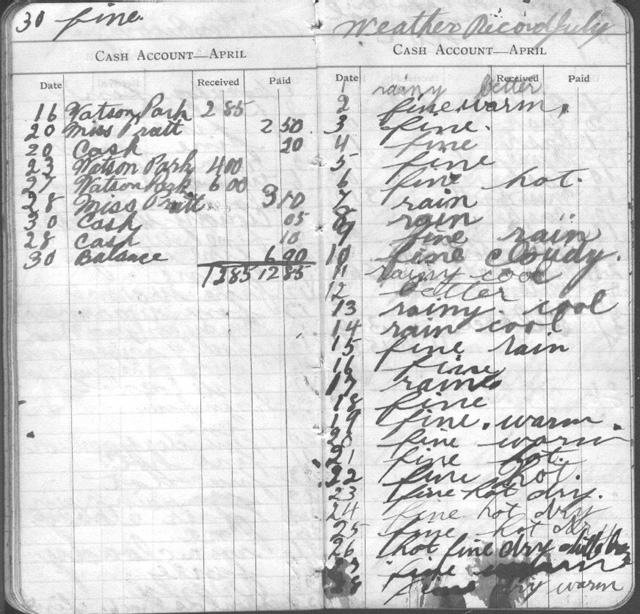 30 fine.
CASH ACCOUNT—APRIL
Date Received Paid
16 Watson Park 2 85
20 Miss Pratt 2 50
20 Cash 20
23 Watson Park 4 00
27 Watson Park 6 00
28 Miss Pratt 3 10
30 Cash 05
28 Cash 10
30 Balance 6 90
12 85 12 85
Weather Record July
CASH ACCOUNT—APRIL
Date Received Paid
1 rainy better
2 fine warm.
3 fine.
4 fine
5 fine
6 fine hot.
7 rain
8 rain
9 fine rain
10 fine cloudy.
11 rainy cool
12 better
13 rainy. cool
14 rain cool
15 fine rain
16 fine
17 rain
18 fine
19 fine. warm.
20 fine warm
21 fine hot.
22 fine hot.
23 fine hot dry.
24 fine hot dry
25 fine hot dry
26 hot fine dry
fine warm
8 fine dry warm